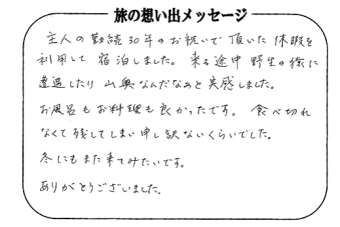 旅の想い出メッセージ
主人の勤続30年のお祝いで頂いた休暇を
利用して宿泊しました。来る途中野生の猿に
遭遇したり山奥なんだなぁと実感しました。
お風呂もお料理も良かったです。食べ切れ
なくて残してしまい申し訳ないくらいでした。
冬にもまた来てみたいです。
ありがとうございました。